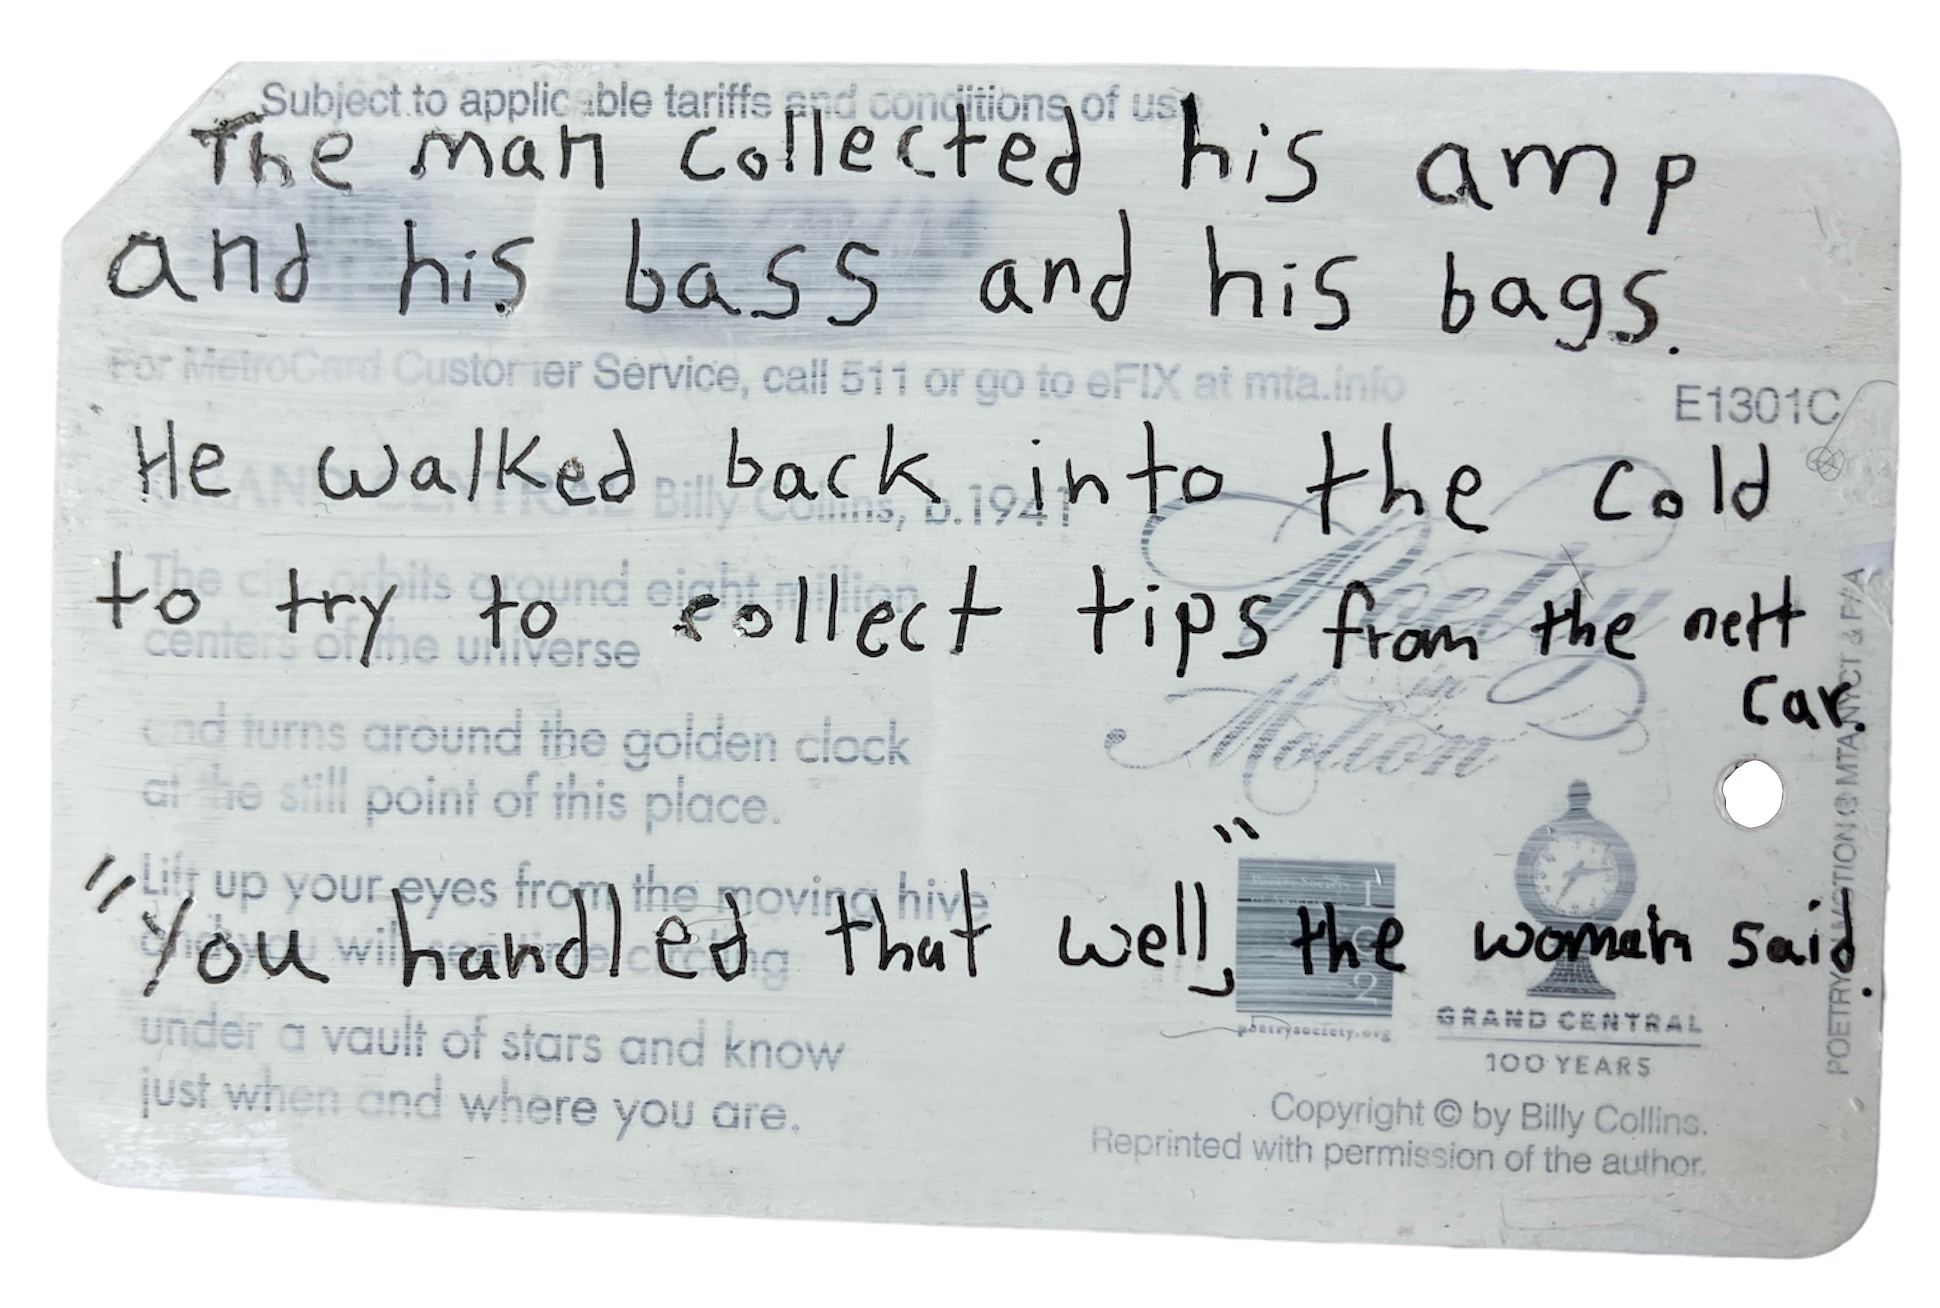 Subject to applicable tariffs and conditions of use
The man collected his amp
and his bass and his bags.
For MetroCard Customer Service, call 511 or go to eFIX at mta.info
E1301C
He walked back into the cold
GRAND CENTRAL Billy Collins, b.1941
The city orbits around eight million
to try to collect tips from the nett
centers of the universe
car.
Poetry
in
Motion
and turns around the golden clock
at the still point of this place.
Lift up your eyes from the moving hive
"You handled that well," the woman said.
and you will see time circling
under a vault of stars and know
just when and where you are.
poetrysociety.org
GRAND CENTRAL
100 YEARS
Copyright © by Billy Collins.
Reprinted with permission of the author.
POETRY IN MOTION ® MTA NYCT & P/A